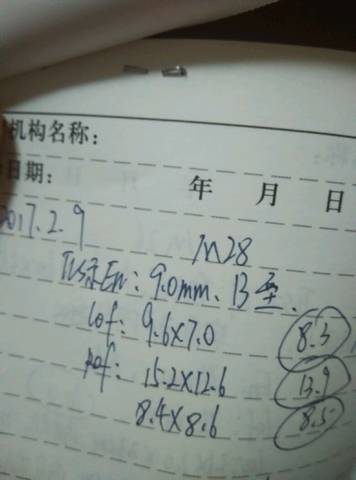 机构名称：
日期：
年 月 日
2017.2.9
M28
TVS示En：9.0mm、B型、
Lof：9.6×7.0 8.3
Rof：15.2×12.6 13.9
8.4×8.6 8.5